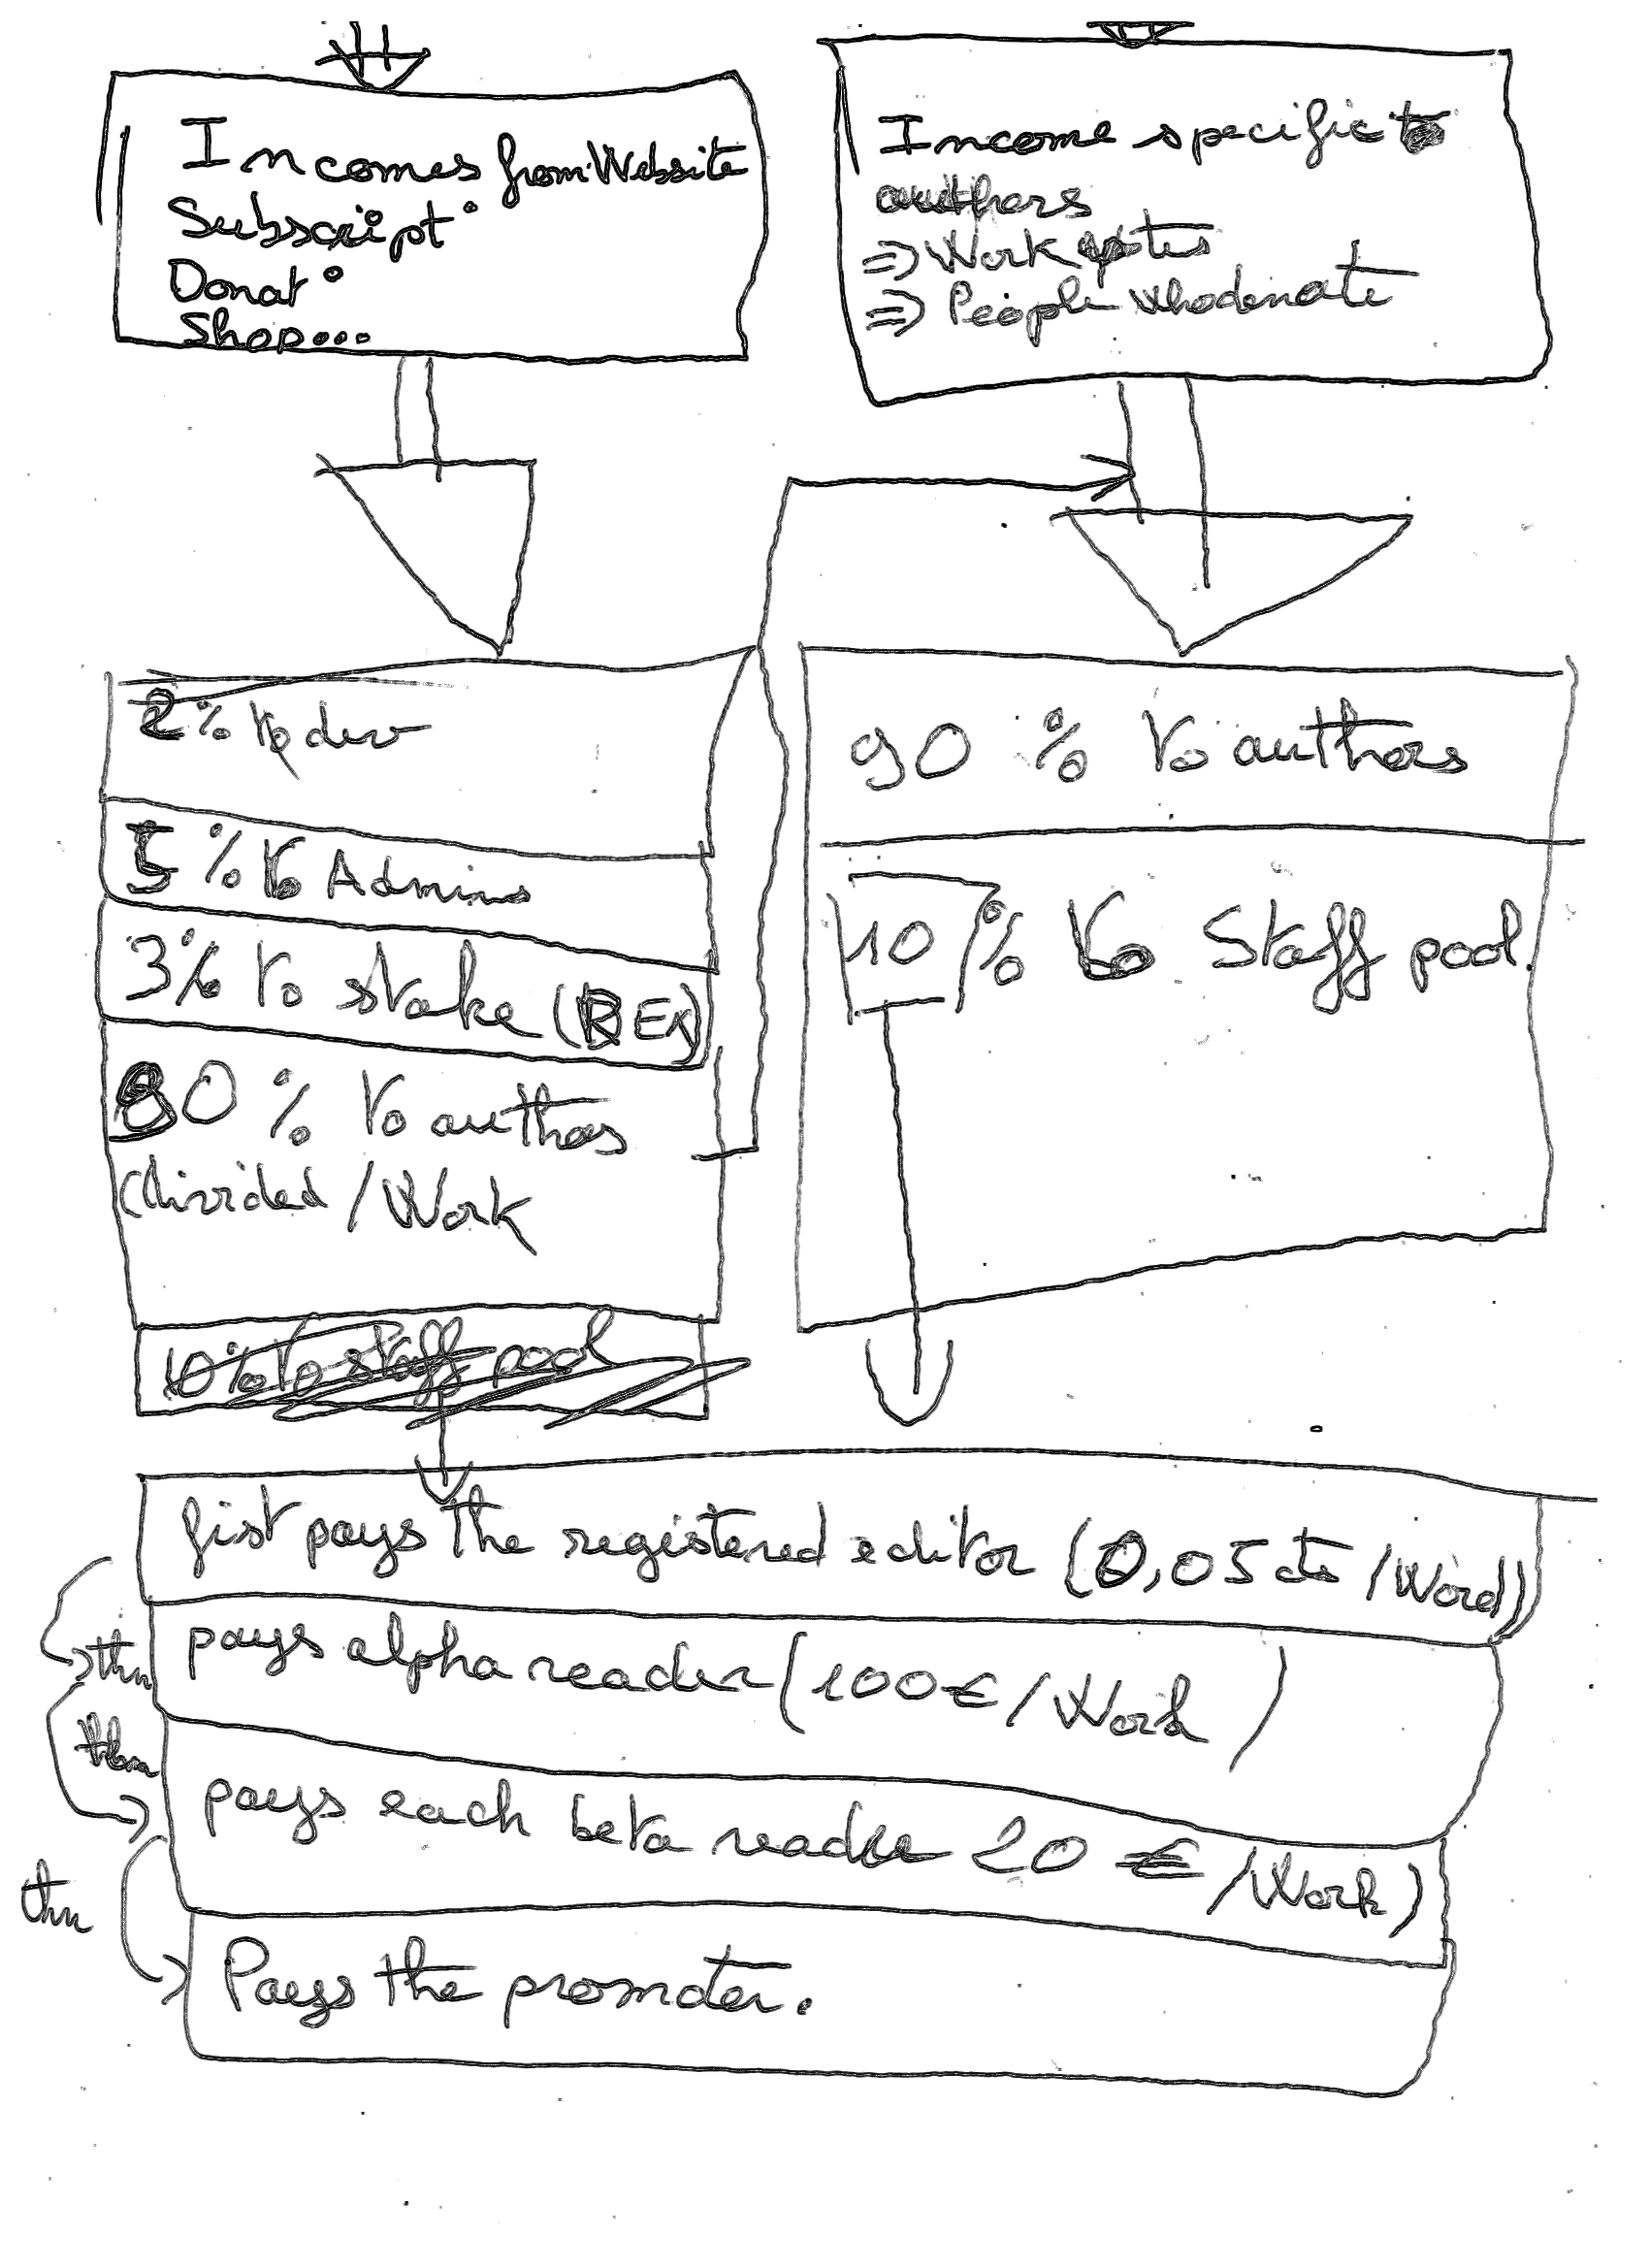 Incomes from Website
Subscript°
Donat°
Shop...
Income specific to
authors
=> Work
=> People who donate
2% to dev
5% to Admins
3% to stake (REX)
80 % to authors
(divided / Work
10% to staff pool
90 % to authors
10 % to Staff pool.
fist pays the registered editor (0,05 cts /Word)
then
pays alpha reader (100€ / Work)
then
pays each beta reader 20 € /Work)
then
Pays the promoter.